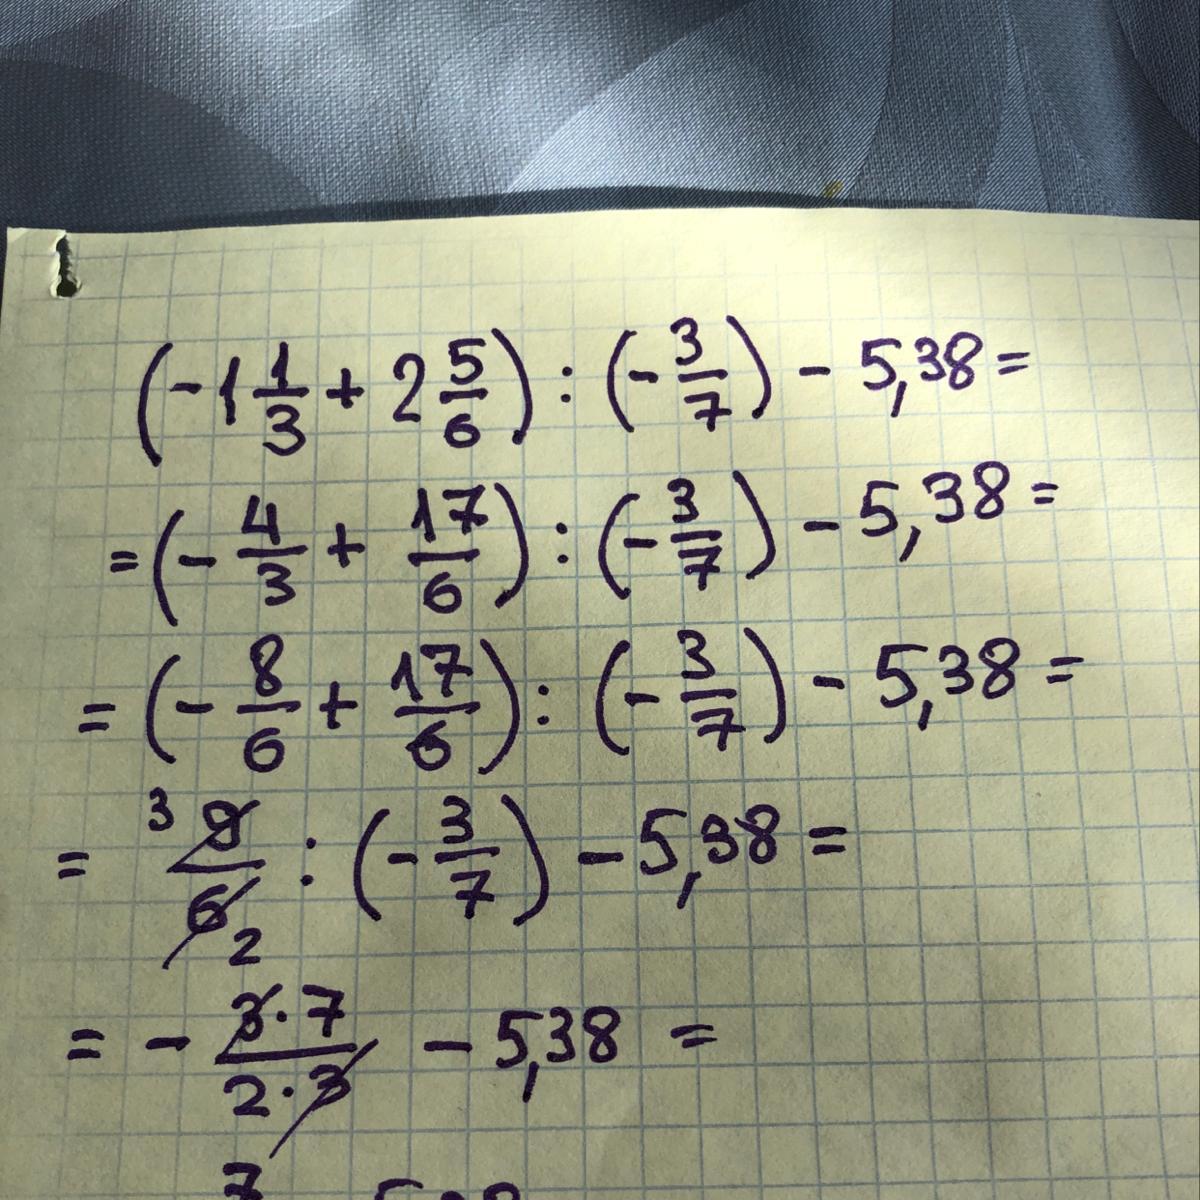 (-1 1/3 + 2 5/6) : (-3/7) - 5,38 =
= (-4/3 + 17/6) : (-3/7) - 5,38 =
= (-8/6 + 17/6) : (-3/7) - 5,38 =
= 3 9/6 2 : (-3/7) - 5,38 =
= - 3·7/2·3 - 5,38 =
7